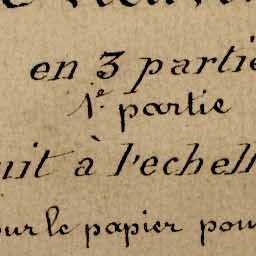 en 3 partie
1.e partie
uit à l'echell
our le papier pour